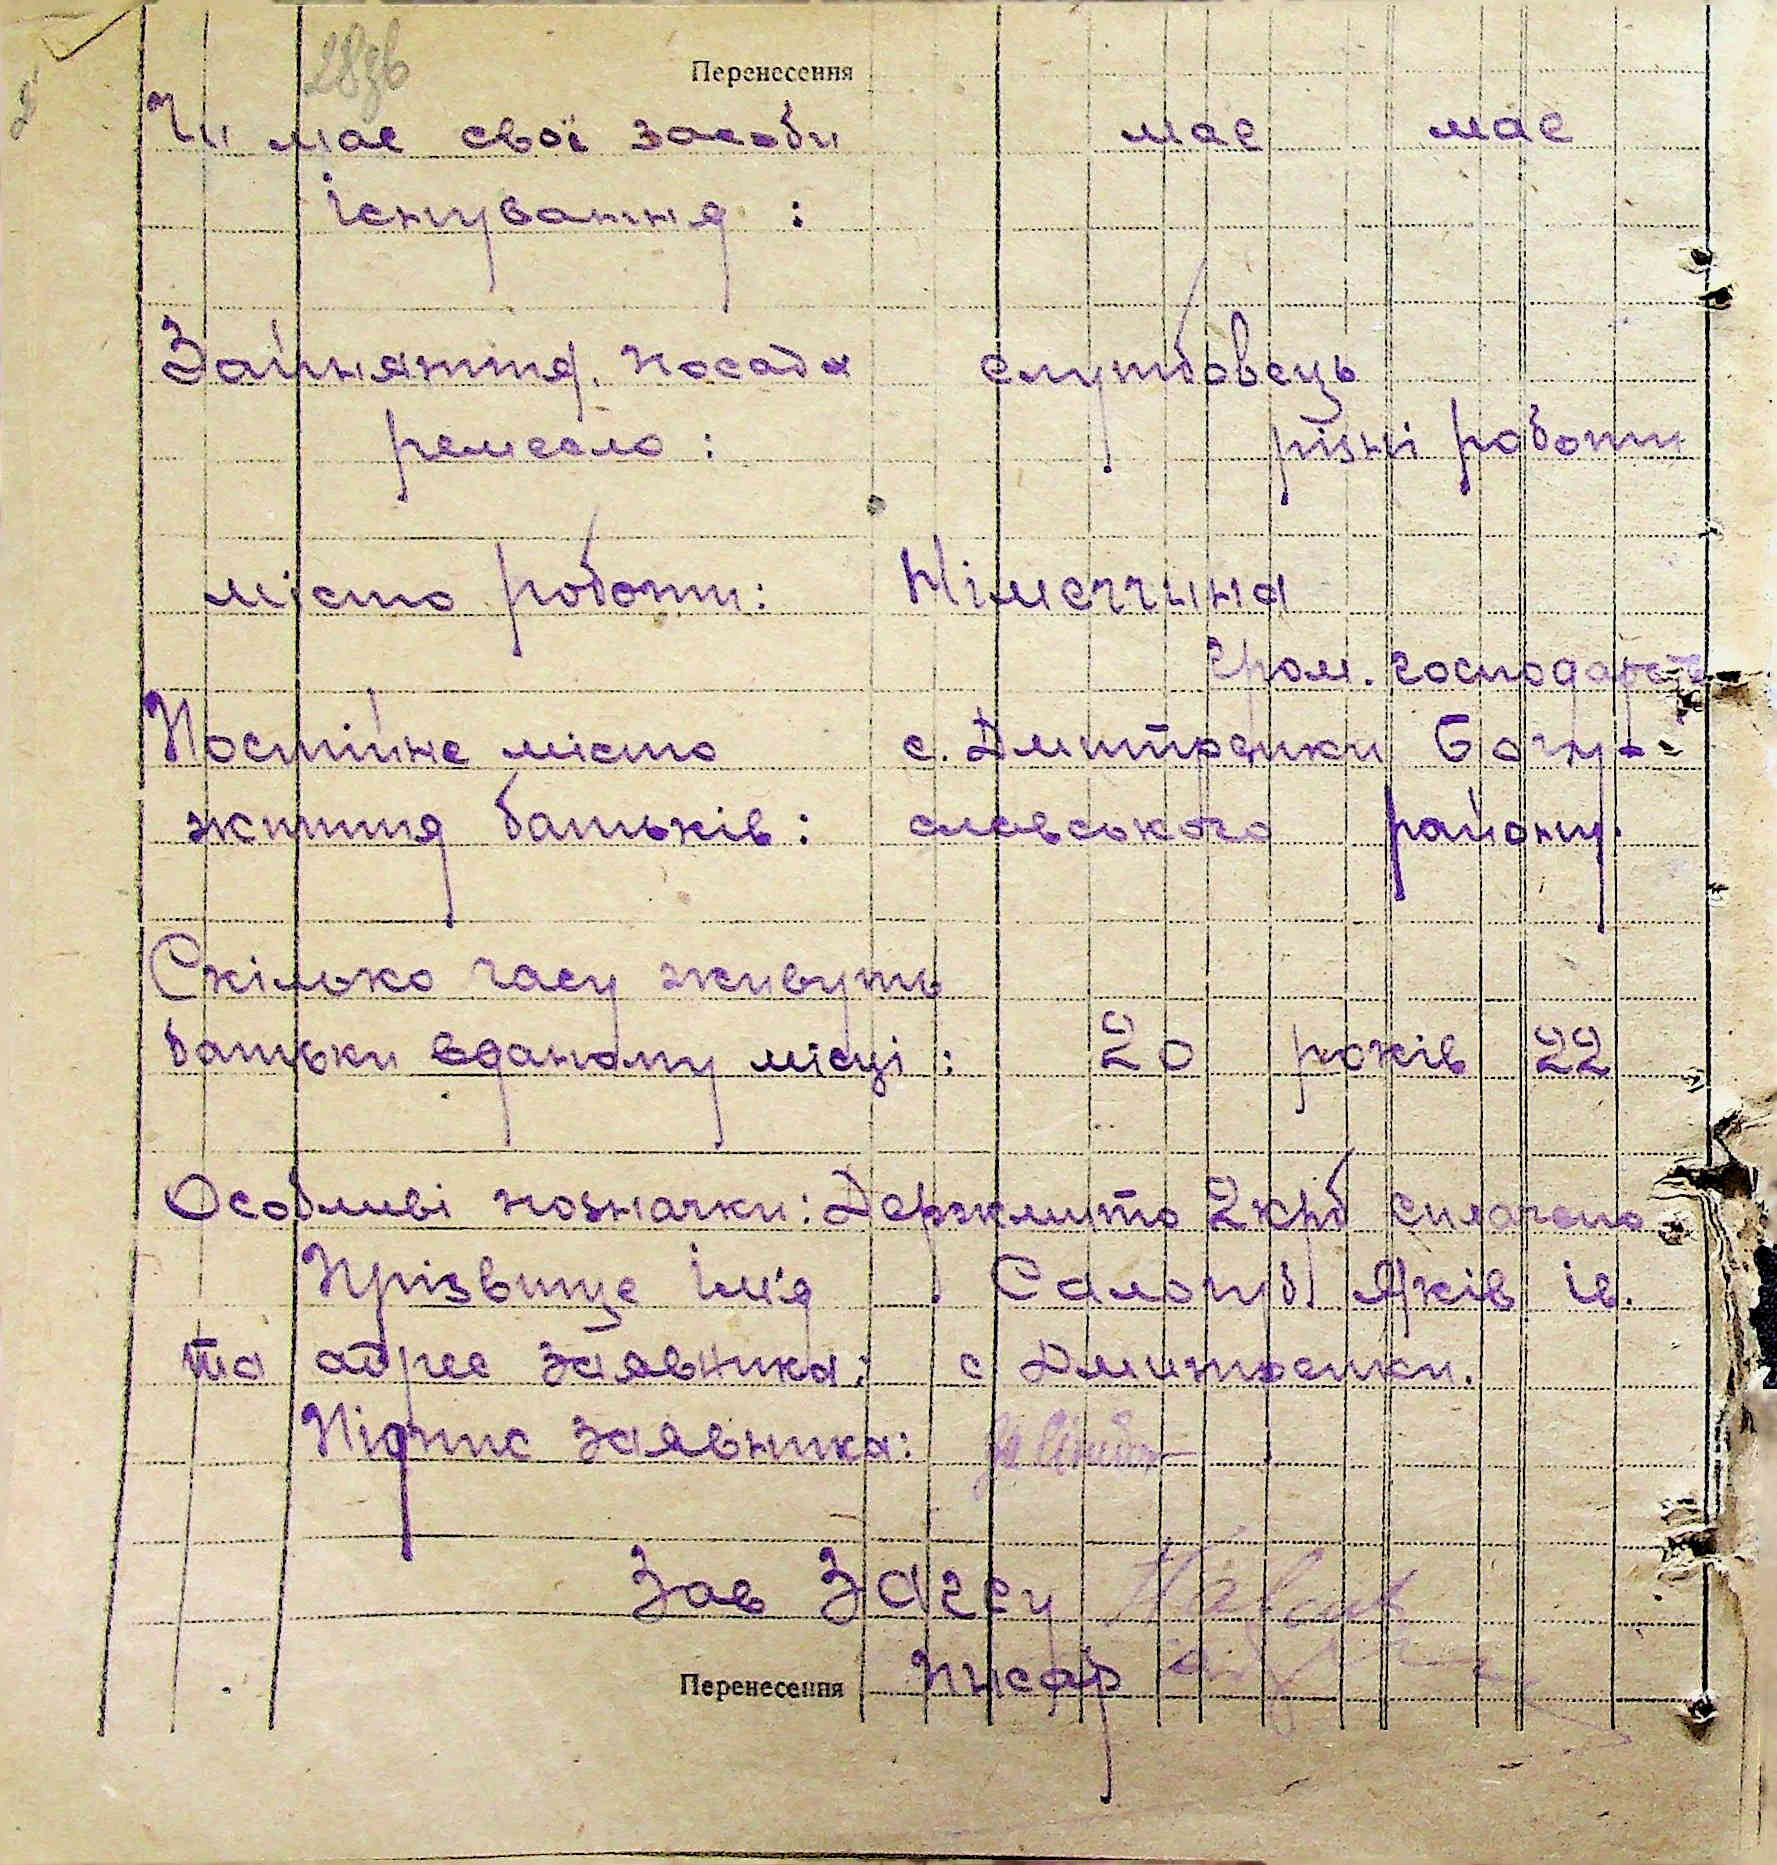 28зв
Перенесення
Чи має свої засоби має має
існування :
Зайняття, посада службовець
ремесло : різні роботи
місто роботи: Німеччина
гром. господарств
Постійне місто с. Дмитренки Богу-
життя батьків : славського району.
Скілько часу живуть
батьки вданому місці : 20 років 22
Особливі позначки: Держмито 2 крб сплачено
Прізвище ім'я Салогуб Яків Ів.
та адрес заявника: с Дмитренки.
Підпис заявника:
Зав Загсу
Перенесення писар